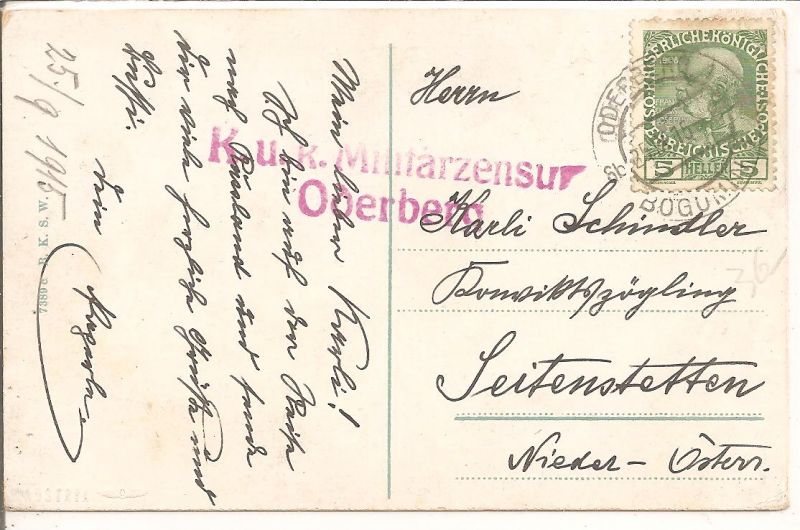 25/9 1915
Mein lieber Karli!
Ich bin auf der Reise
nach Russland und sende
dir viele herzliche Grüße und
Küsse.
Dein
K. u. k. Militärzensur
Oderberg
Herrn
Karli Schindler
Konviktszögling
Seitenstetten
Nieder-Österr.
7389 c B. K. S. W.
KAISERLICHE KÖNIGLICHE
ÖSTERREICHISCHE
1908
5 HELLER 5
ODERBERG
BOGUMIN
36